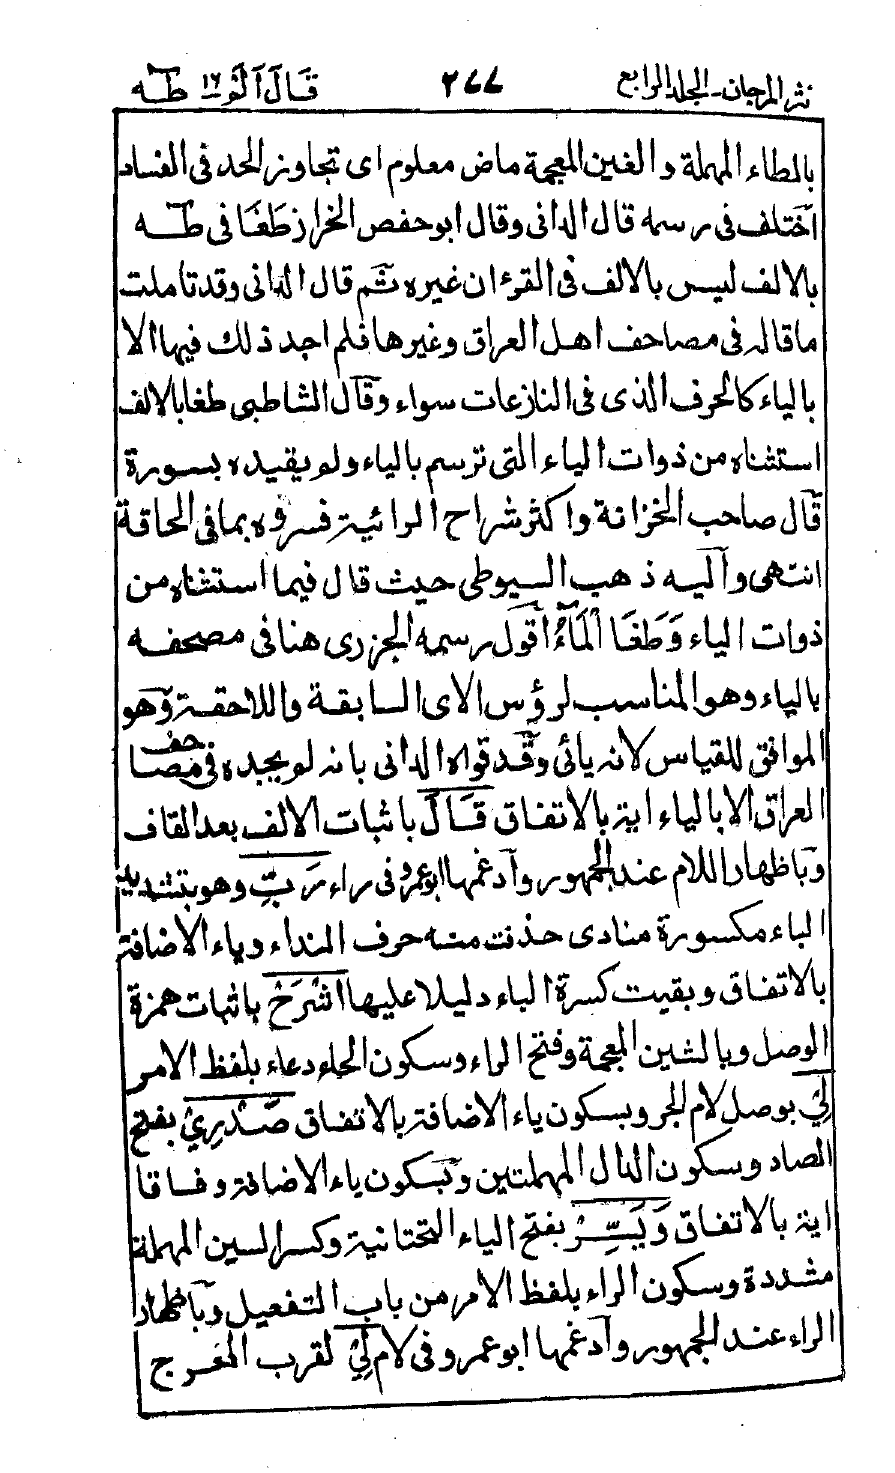 نثر المرجان-الجلد الرابع ٢٧٧ قَالَ اَلَوْ ١٦ طٰهٰ
بالطاء المهملة والغين المعجمة ماض معلوم اى تجاوز الحد فى الفساد
اختلف فى رسمه قال الدانى وقال ابو حفص الخزاز طَغَا فى طٰهٰ
بالالف ليس بالالف فى القرءان غيره ثم قال الدانى وقد تاملت
ما قاله فى مصاحف اهل العراق وغيرها فلم اجد ذلك فيها الا
بالياء كالحرف الذى فى النازعات سواء وقال الشاطبى طغا بالالف
استثناه من ذوات الياء التى ترسم بالياء ولم يقيده بسورة
قال صاحب الخزانة واكثر شراح الرائية فسروه بما فى الحاقة
انتهى وآليه ذهب السيوطى حيث قال فيما استثناه من
ذوات الياء وَطَغَا الْمَآءُ اقول رسمه الجزرى هنا فى مصحفه
بالياء وهو المناسب لرؤس الاى السابقة واللاحقة وهو
الموافق للقياس لانه يائى وقد قواه الدانى بانه لم يجده فى مصاحف
العراق الا بالياء اية بالاتفاق قَالَ باثبات الالف بعد القاف
وباظهار اللام عند الجمهور وآدغمها ابو عمرو فى راء رَبِّ وهو بتشديد
الباء مكسورة منادى حذفت منه حرف النداء وياء الاضافة
بالاتفاق وبقيت كسرة الباء دليلا عليها اشْرَحْ باثبات همزة
الوصل وبالشين المعجمة وفتح الراء وسكون الحاء دعاء بلفظ الامر
لِيْ بوصل لام الجر وبسكون ياء الاضافة بالاتفاق صَدْرِيْ بفتح
الصاد وسكون الدال المهملتين وبسكون ياء الاضافة وفاقا
اية بالاتفاق وَيَسِّرْ بفتح الياء التحتانية وكسر السين المهملة
مشددة وسكون الراء بلفظ الامر من باب التفعيل وباظهار
الراء عند الجمهور وآدغمها ابو عمرو فى لام لِيْ لقرب المخرج